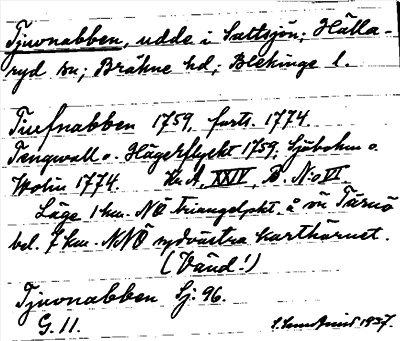 Tjuvnabben, udde i Saltsjön; Hälla-
ryd sn; Bräkne hd; Blekinge l.
Tiufnabben 1759, forts. 1774.
Tengwall o. Hägerflyckt 1759; Ljúbohm o.
Wolin 1774. Kr. A. XXIV, B. N:o VI
Läge 1 km. NÖ triangelpkt. å ön Tärnö
bel. 7 km. NNÖ sydvästra karthörnet.
(Vänd!)
Tjuvnabben Sj: 96.
G. 11. 1937.